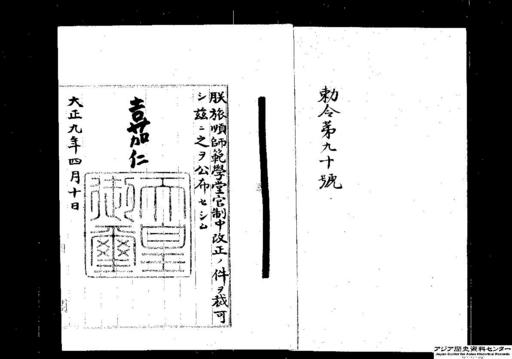 勅令第九十號
朕旅順師範學堂官制中改正ノ件ヲ裁可
シ茲ニ之ヲ公布セシム
嘉仁
天皇
御璽
大正九年四月十日
アジア歴史資料センター
Japan Center for Asian Historical Records